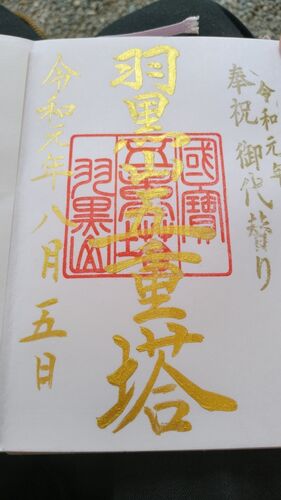 令和元年
奉祝 御代替り
羽黒山五重塔
國寶
五重塔
羽黒山
令和元年八月五日